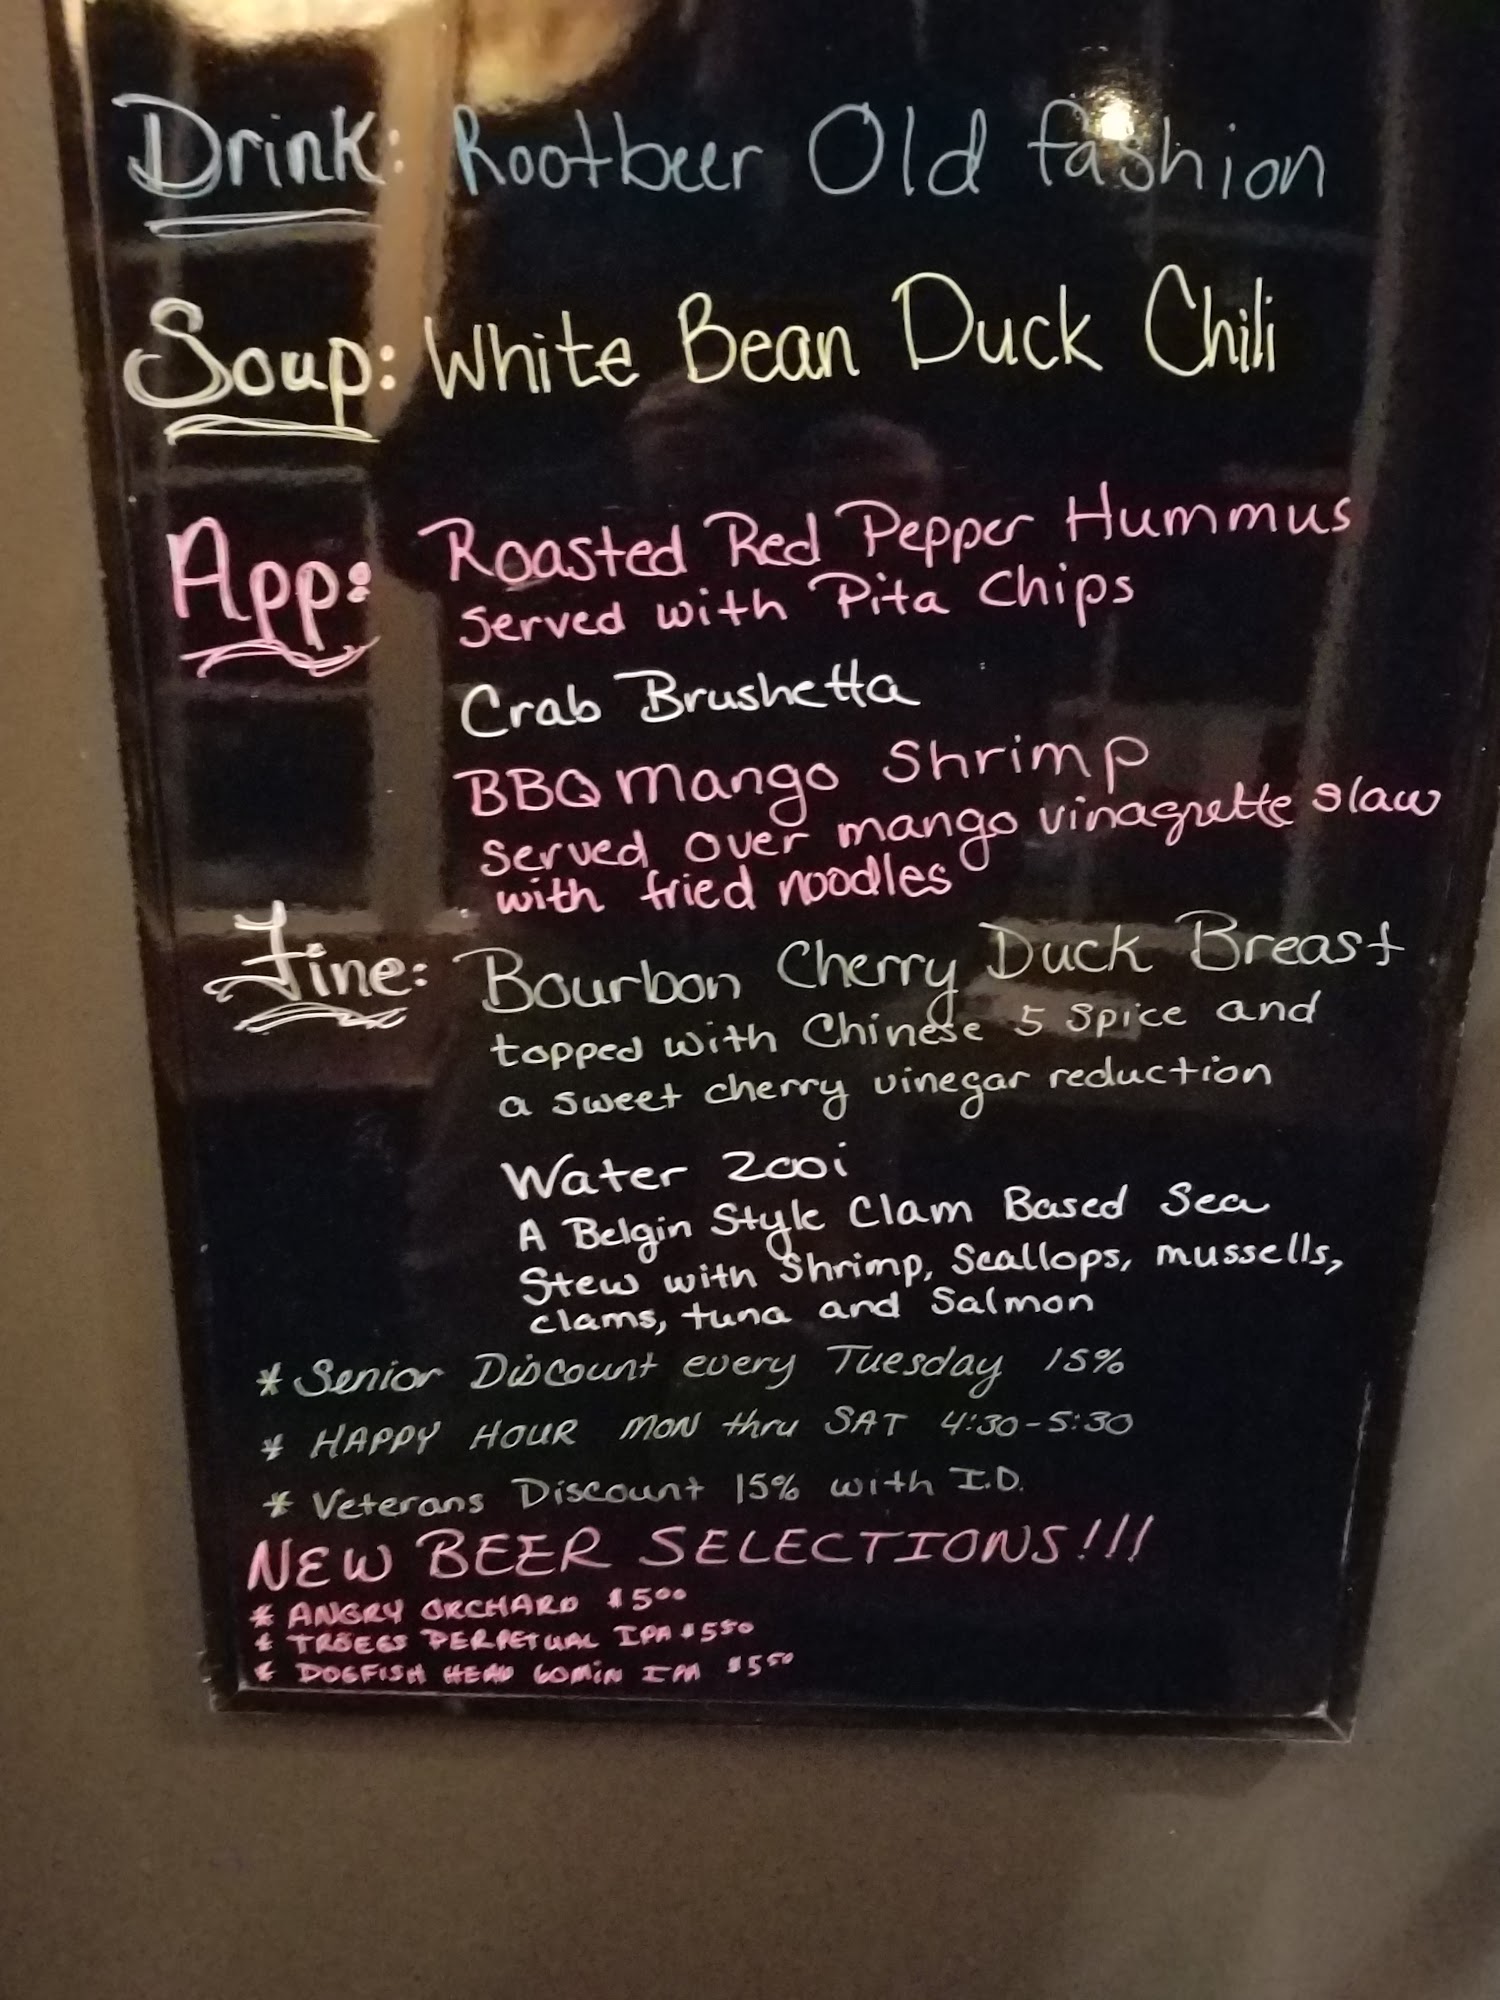 Drink: Rootbeer Old fashion
Soup: White Bean Duck Chili
App: Roasted Red Pepper Hummus
served with Pita Chips
Crab Brushetta
BBQ Mango Shrimp
served over mango vinagrette slaw
with fried noodles
Fine: Bourbon Cherry Duck Breast
topped with Chinese 5 spice and
a sweet cherry vinegar reduction
Water Zooi
A Belgin Style Clam Based Sea
Stew with Shrimp, Scallops, mussells,
clams, tuna and Salmon
* Senior Discount every Tuesday 15%
* HAPPY HOUR MON thru SAT 4:30-5:30
* Veterans Discount 15% with I.D.
NEW BEER SELECTIONS!!!
* ANGRY ORCHARD $500
* TRÖEGS PERPETUAL IPA $550
* DOGFISH HEAD 60MIN IPA $550